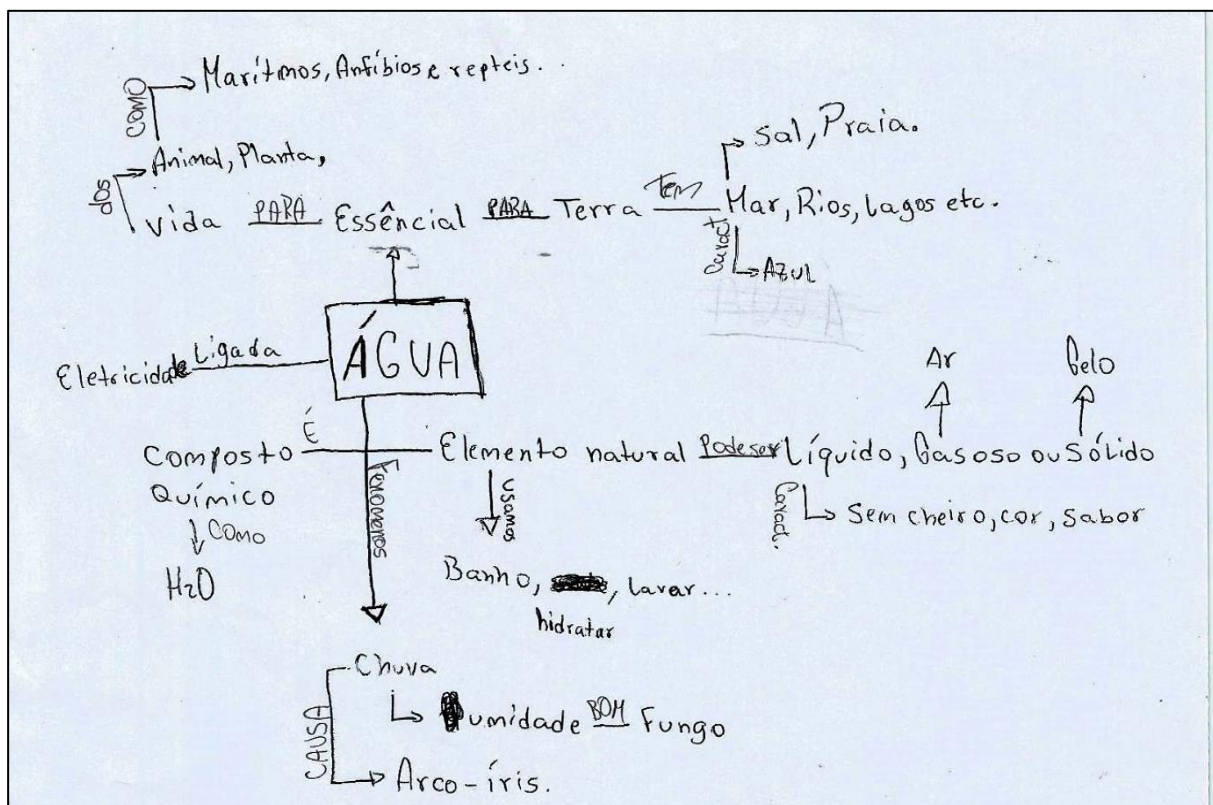 Marítmos, Anfíbios e repteis...
COMO
Animal, Planta,
dos
Vida PARA Essêncial PARA Terra Tem Mar, Rios, Lagos etc.
Sal, Praia.
Caract
AZUL
ÁGUA
Eletricidade Ligada
ÁGUA
Ar
Gelo
É
Composto
Químico
Elemento natural Pode ser Líquido, Gasoso ou Sólido
Caract.
Sem cheiro, cor, Sabor
como
H2O
Fenomenos
usamos
Banho, lavar...
hidratar
Chuva
umidade BOM Fungo
CAUSA
Arco-íris.